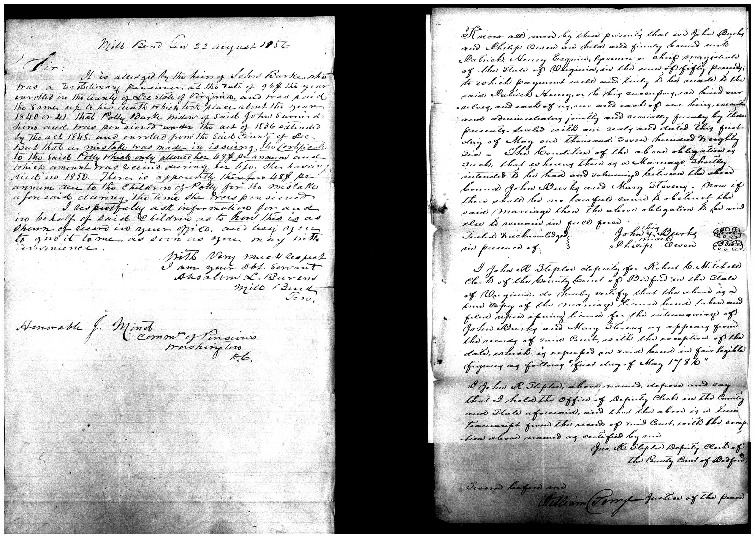 Mill Bend Ten 22 August 1852
Sir.
It is alledged by the heirs of John Burke who
was a revolutionary pensioner, at the rate of 96$ the year
enrolled in the County of Lee State of Virginia and was paid
the same up to his death which took place about the year
1840 or 41. That Polly Burk widow of said John Burk
was pensioned under the act of 1836 extended
by the act 1848. and enrolled from the said County of Lee
But that a mistake was made in issuing the certificate
to the said Polly which only placed her 48$ per annum and
which amount was received during her life. She having
died in 1850. There is apparently therefore 48$ per
annum due to the children of Polly for the mistake
aforesaid during the time she was pensioned
I respectfully ask information for and
in behalf of said children as to how this is as
shown of record in your office, and beg you
to give it to me as soon as you may with
convenience.
With Very much respect
I am your Obt. servant
Absalom L. Burem
Mill Bend
Ten.
Honorable J. Minot
Comms. of Pensions
Washington
D.C.
Know all men by these presents that we John Burks
and Philip Owen are held and firmly bound unto
Patrick Henry Esquire, Governor or Chief magistrate
of the State of Virginia, in the sum of fifty pounds,
to which payment well and truly to be made to the
said Patrick Henry, or to his successors, we bind our
selves, and each of us, our and each of our heirs, executors
and administrators, jointly and severally, firmly by these
presents, sealed with our seals and dated this first
day of May one thousand seven hundred & eighty
six. The Condition of the above obligation is
such, that whereas there is a Marriage shortly
intended to be had and solemnized between the above
bound John Burks and Mary Stevens. Now if
there should be no lawful cause to obstruct the
said marriage then the above obligation to be void
else to remain in full force.
Sealed & acknowledged
in presence of
John Burks
Philip Owen
I John R. Steptoe deputy for Robert C. Mitchell
Clk. of the County Court of Bedford in the State
of Virginia do hereby certify that the above is a
true copy of the marriage license bond taken and
filed upon issuing license for the intermarriage of
John Burks and Mary Stevens as appears from
the records of said Court, with the exception of the
date, which is expressed on said bond in fair legible
figures as follows "first day of May 1786"
I John R. Steptoe, above named, depose and say
that I hold the Office of Deputy Clerk in the County
and State aforesaid, and that the above is a true
transcript from the records of said Court, with the excep-
tion above named as certified by me
Jno. R. Steptoe Deputy Clerk of
the County Court of Bedford
Justice of the peace